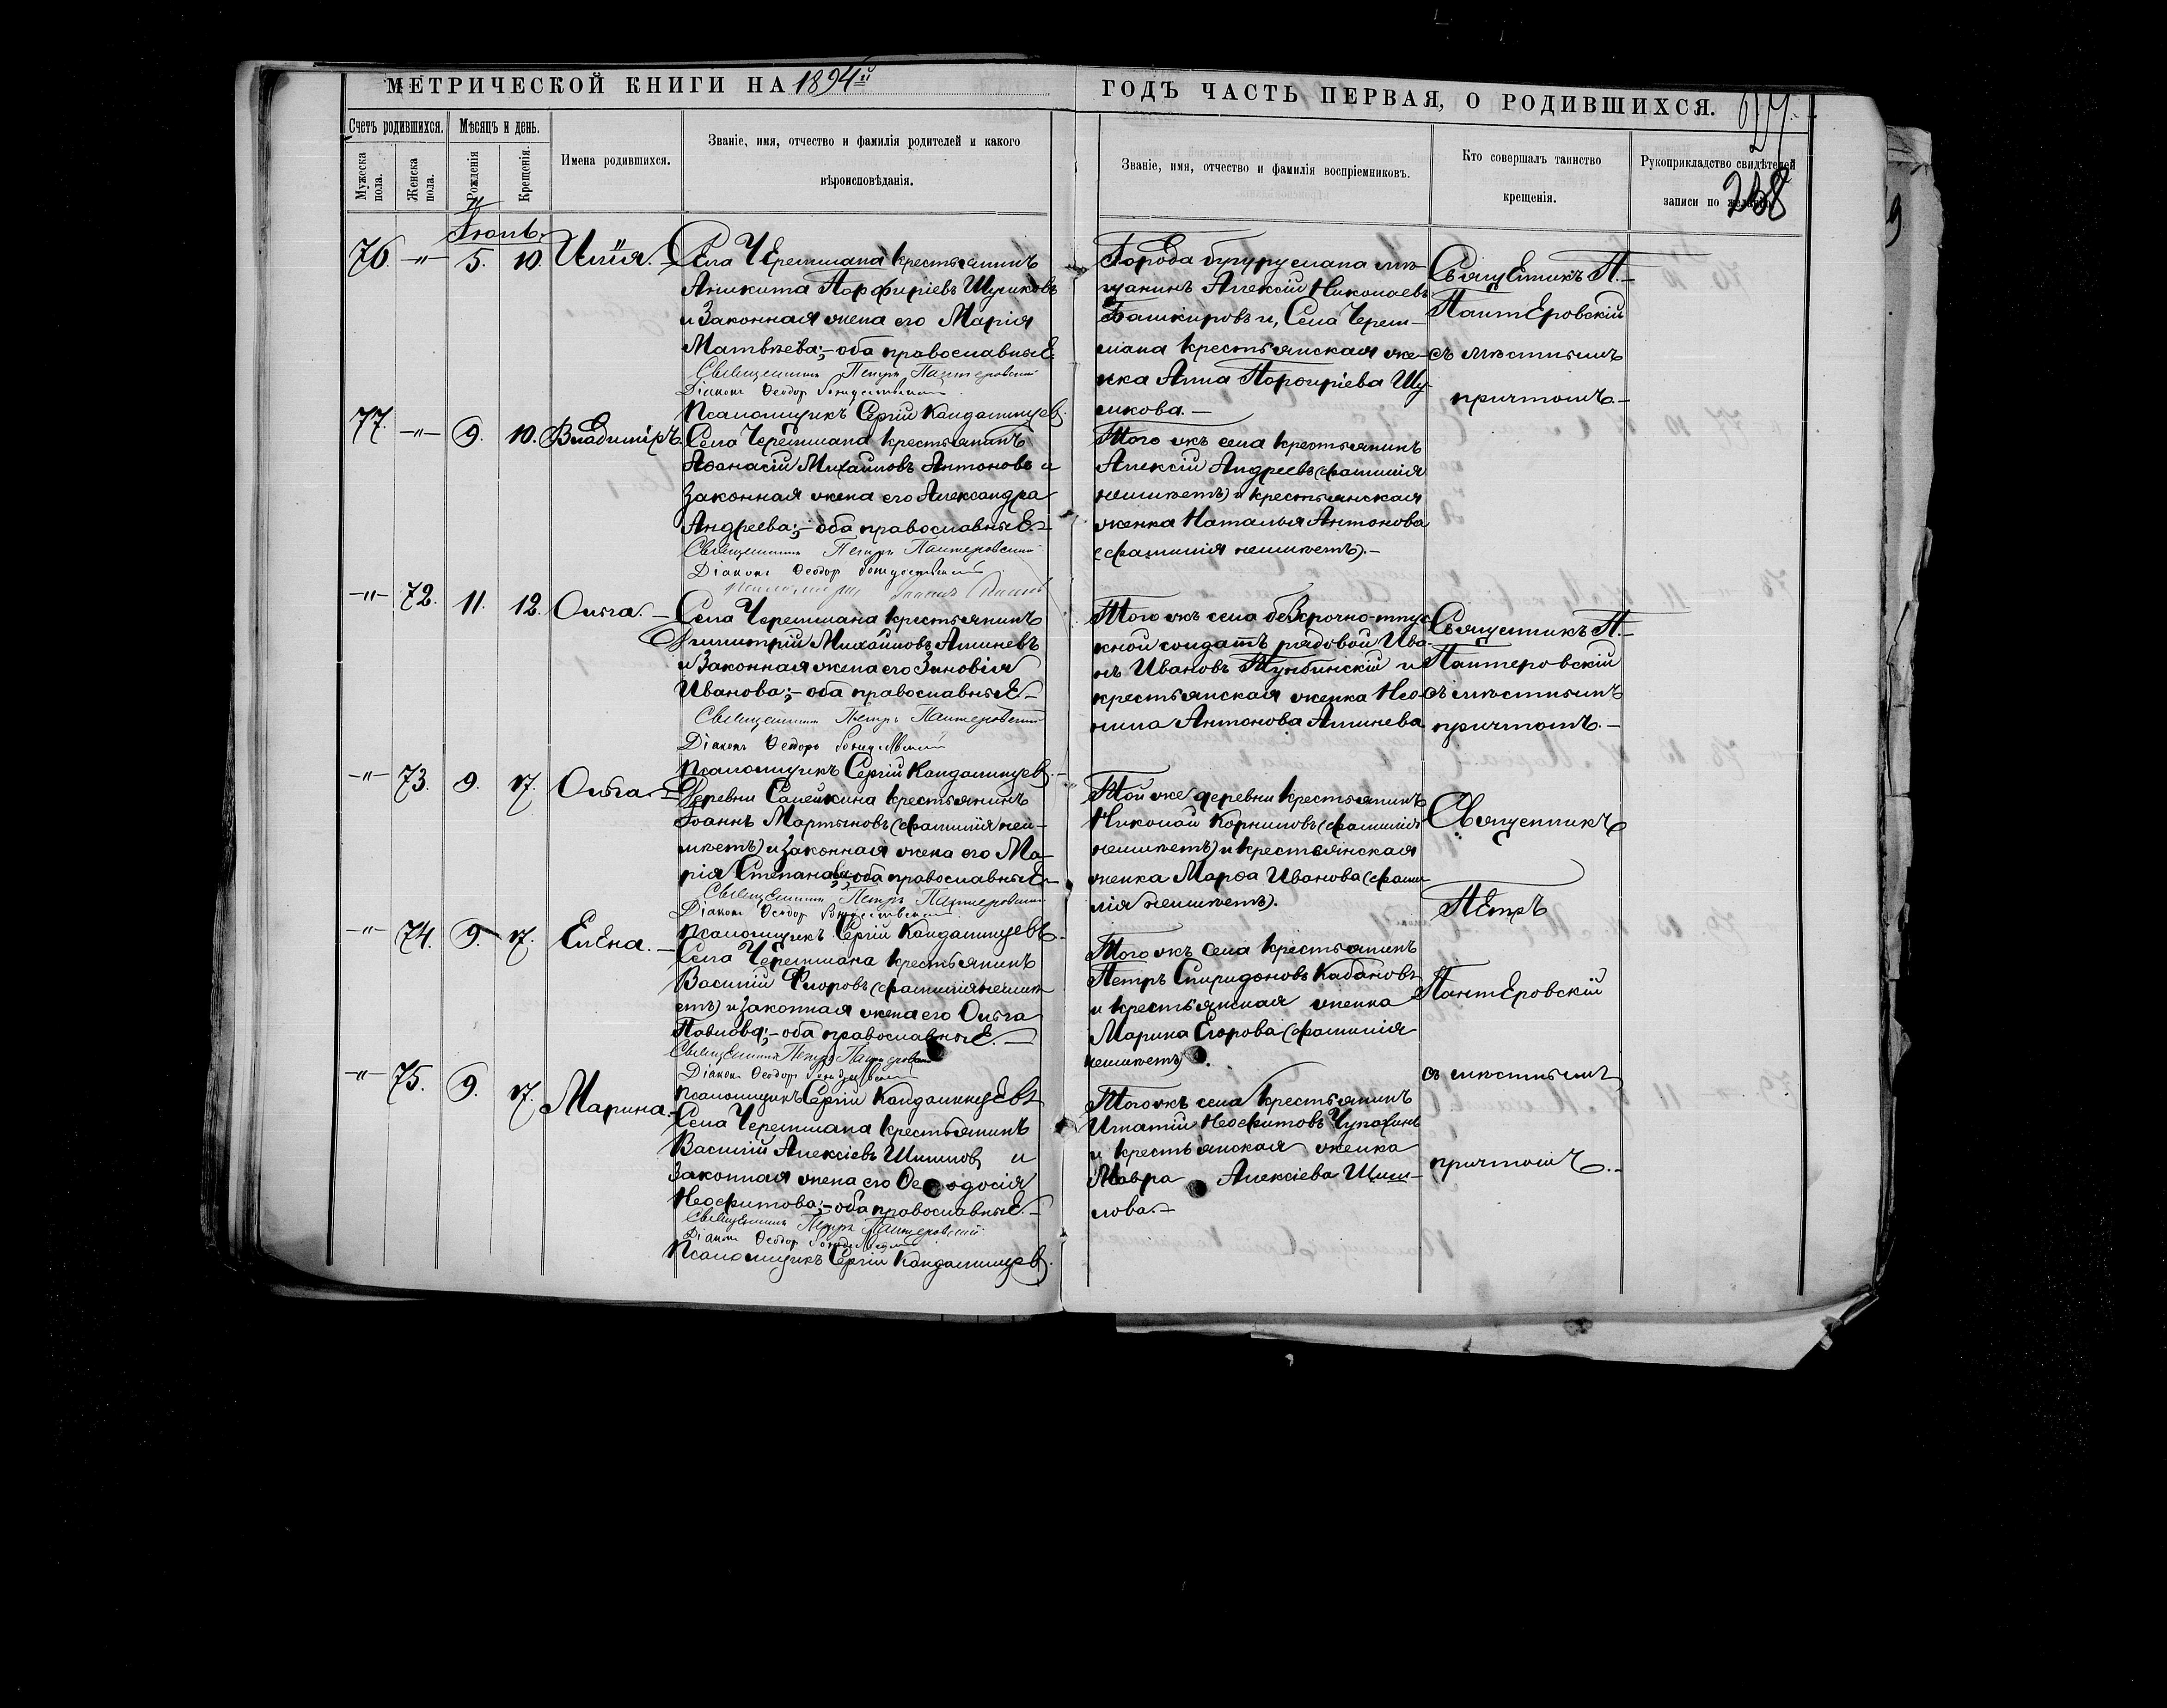 МЕТРИЧЕСКОЙ КНИГИ НА 1894й
ГОДЪ ЧАСТЬ ПЕРВАЯ, О РОДИВШИХСЯ.
268
Счетъ родившихся.
Мужеска пола.
Женска пола.
Мѣсяцъ и день.
Рожденія
Крещенія.
Имена родившихся.
Званіе, имя, отчество и фамилія родителей и какого
вѣроисповѣданія.
Званіе, имя, отчество и фамилія воспріемниковъ.
Кто совершалъ таинство
крещенія.
Рукоприкладство свидѣтелей
записи по желанію.
76. —„— 5. 10. Илія.
Села Черемшана крестьянинъ
Аникита Порфиріевъ
и законная жена его Марія
Матвѣева;- оба православные.
Священникъ Петръ Пантеровскій
Діаконъ Ѳеодоръ Рождественскій
Псаломщикъ Сергій Кандалинцевъ.
Города Бугуруслана мѣ-
щанинъ Алексій Николаевъ
Башкировъ и, Села Черем-
шана крестьянская же-
нка Анна Порфиріева
Священникъ П.-
Пантеровскій
съ мѣстнымъ
причтомъ.-
77. —„— 9. 10. Владиміръ.
Села Черемшана крестьянинъ
Аѳанасій Михайловъ Антоновъ и
законная жена его Александра
Андреева;- оба православные.-
Священникъ Петръ Пантеровскій
Діаконъ Ѳеодоръ Рождественскій
Того жъ села крестьянинъ
Алексій Андреевъ (фамилія
неимѣетъ) и крестьянская
женка Наталья Антонова
(фамилія неимѣетъ).-
—„— 72. 11. 12. Ольга.-
Села Черемшана крестьянинъ
Димитрій Михайловъ Аминевъ
и законная жена его Зиновія
Иванова;- оба православные-
Священникъ Петръ Пантеровскій
Діаконъ Ѳеодоръ Рождественскій
Псаломщикъ Сергій Кандалинцевъ.-
Того жъ села безсрочно-отпус-
кной солдатъ рядовой Ива-
нъ Ивановъ и
крестьянская женка Нео-
нила Антонова Аминева
Священникъ П.-
Пантеровскій
съ мѣстнымъ
причтомъ.-
—„— 73. 9. 17. Ольга.-
Деревни Сапейкина крестьянинъ
Іоаннъ Мартыновъ (фамилія неи-
мѣетъ) и законная жена его Ма-
рія Степанова;- оба православные.-
Священникъ Петръ Пантеровскій
Діаконъ Ѳеодоръ Рождественскій
Псаломщикъ Сергій Кандалинцевъ.
Той же деревни крестьянинъ
Николай Корниловъ (фамилія
неимѣетъ) и крестьянская
женка Марѳа Иванова (фами-
лія неимѣетъ).
Священникъ
Петръ
Пантеровскій
съ мѣстнымъ
причтомъ.-
—„— 74. 9. 17. Елена.-
Села Черемшана крестьянинъ
Василій Флоровъ (фамилія неимѣ-
етъ) и законная жена его Ольга
Павлова;- оба православные.-
Священникъ Петръ Пантеровскій
Діаконъ Ѳеодоръ Рождественскій
Псаломщикъ Сергій Кандалинцевъ
Того жъ села крестьянинъ
Петръ Спиридоновъ Кабановъ
и крестьянская женка
Марина Егорова (фамилія
неимѣетъ).
—„— 75. 9. 17. Марина.-
Села Черемшана крестьянинъ
Василій Алексіевъ Шишловъ и
законная жена его Ѳеодосія
Неофитова;- оба православные.-
Священникъ Петръ Пантеровскій
Діаконъ Ѳеодоръ Рождественскій
Псаломщикъ Сергій Кандалинцевъ.
Того жъ села крестьянинъ
Игнатій Неофитовъ
и крестьянская женка
Мавра Алексіева Шиш-
лова.-